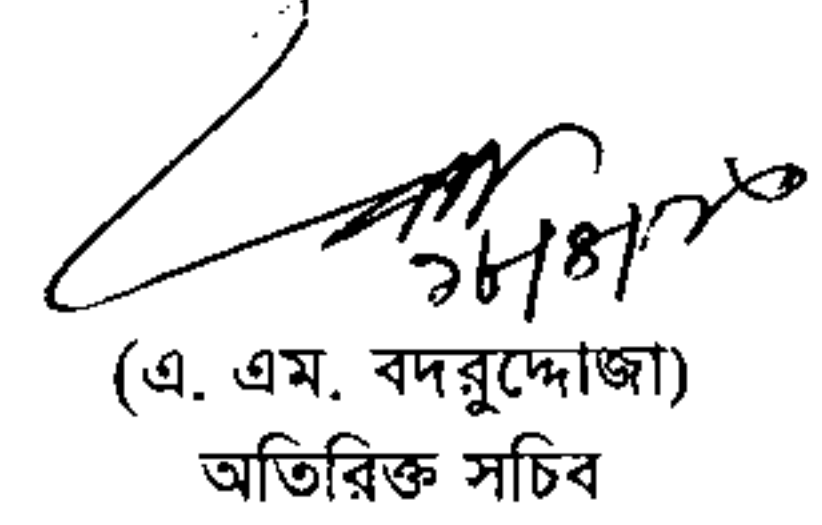 ১৮/৪/
(এ. এম. বদরুদ্দোজা)
অতিরিক্ত সচিব